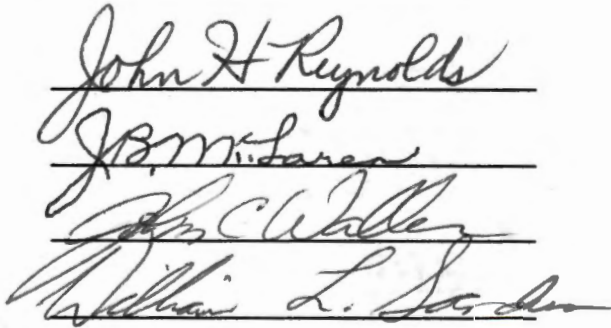 John H Reynolds
J.B. McLaren
John C Waller
William L. Sanders